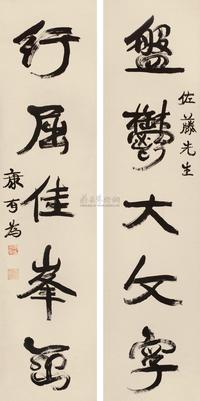 盤鬱大文字
佐藤先生
行屈佳峯
康有為